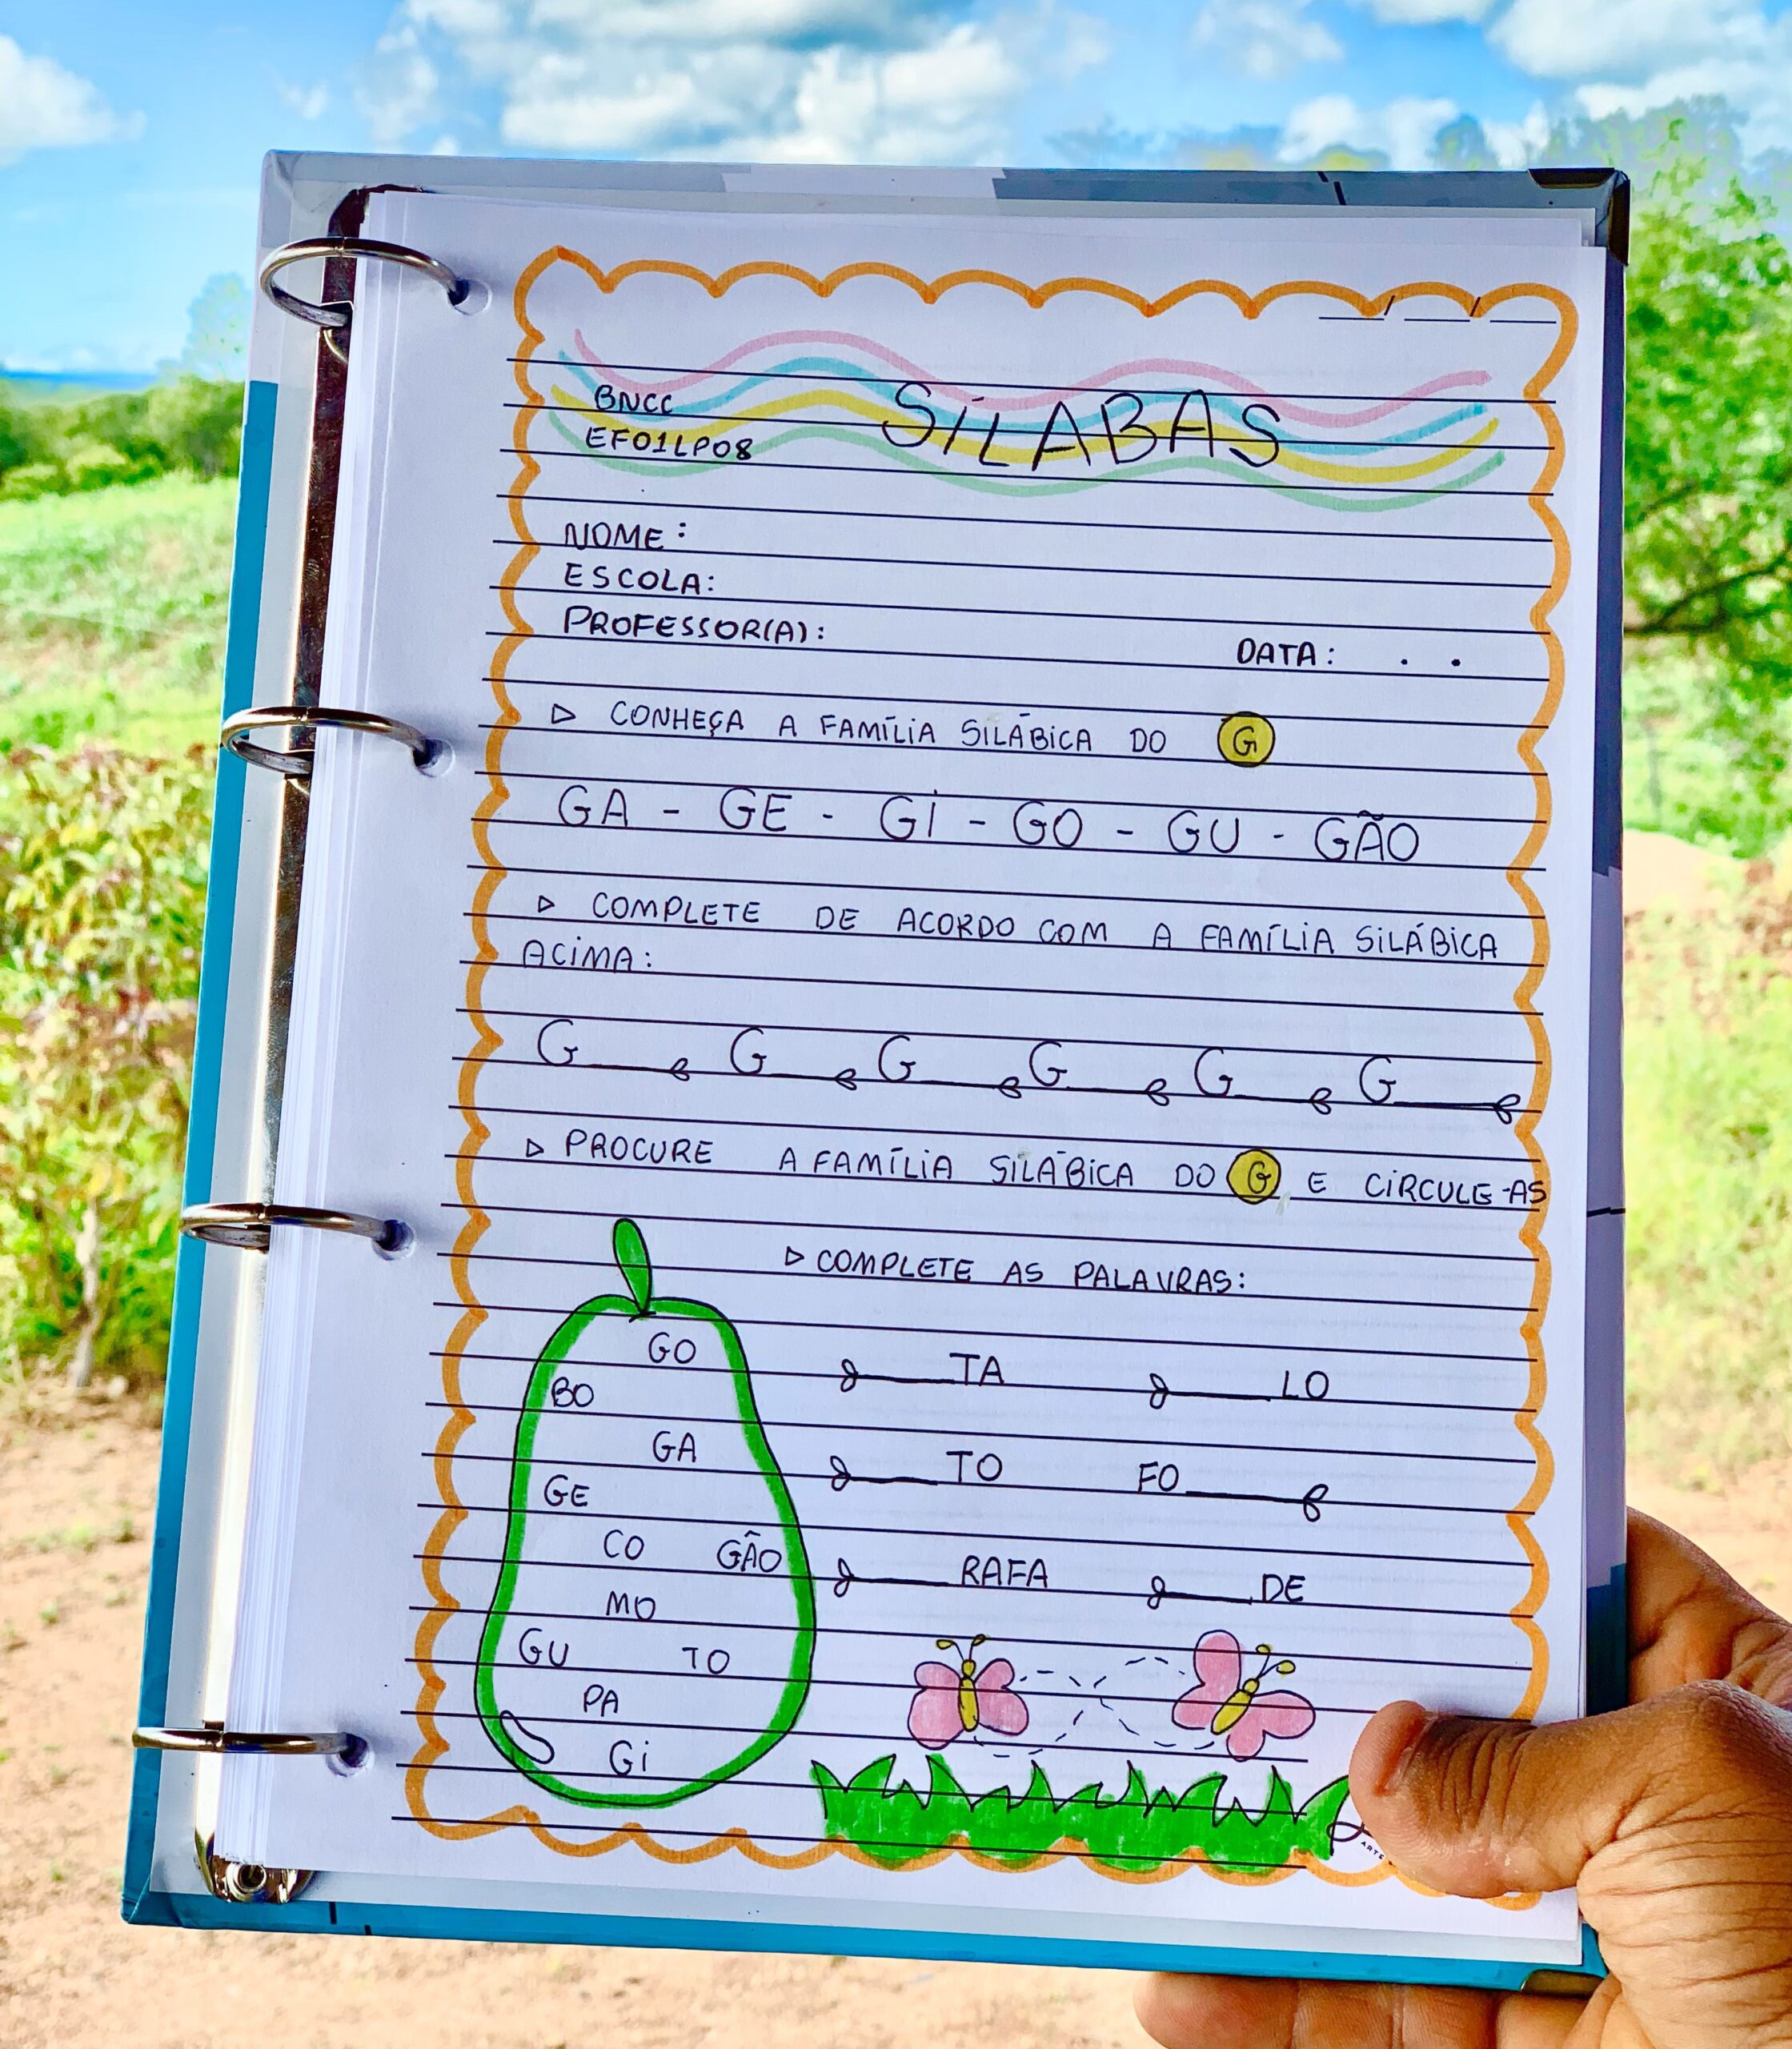 __/__/__
BNCC
SÍLABAS
EF01LP08
NOME:
ESCOLA:
PROFESSOR(A):
DATA: . .
▷ CONHEÇA A FAMÍLIA SILÁBICA DO G
GA - GE - Gi - GO - GU - GÃO
▷ COMPLETE DE ACORDO COM A FAMÍLIA SILÁBICA
ACIMA:
G___ G___ G___ G___ G___ G___
▷ PROCURE A FAMÍLIA SILÁBICA DO G E CIRCULE-AS
▷ COMPLETE AS PALAVRAS:
GO
BO
GA
GE
CO GÃO
MO
GU TO
PA
Gi
___TA ___LO
___TO FO___
___RAFA ___DE
ARTE